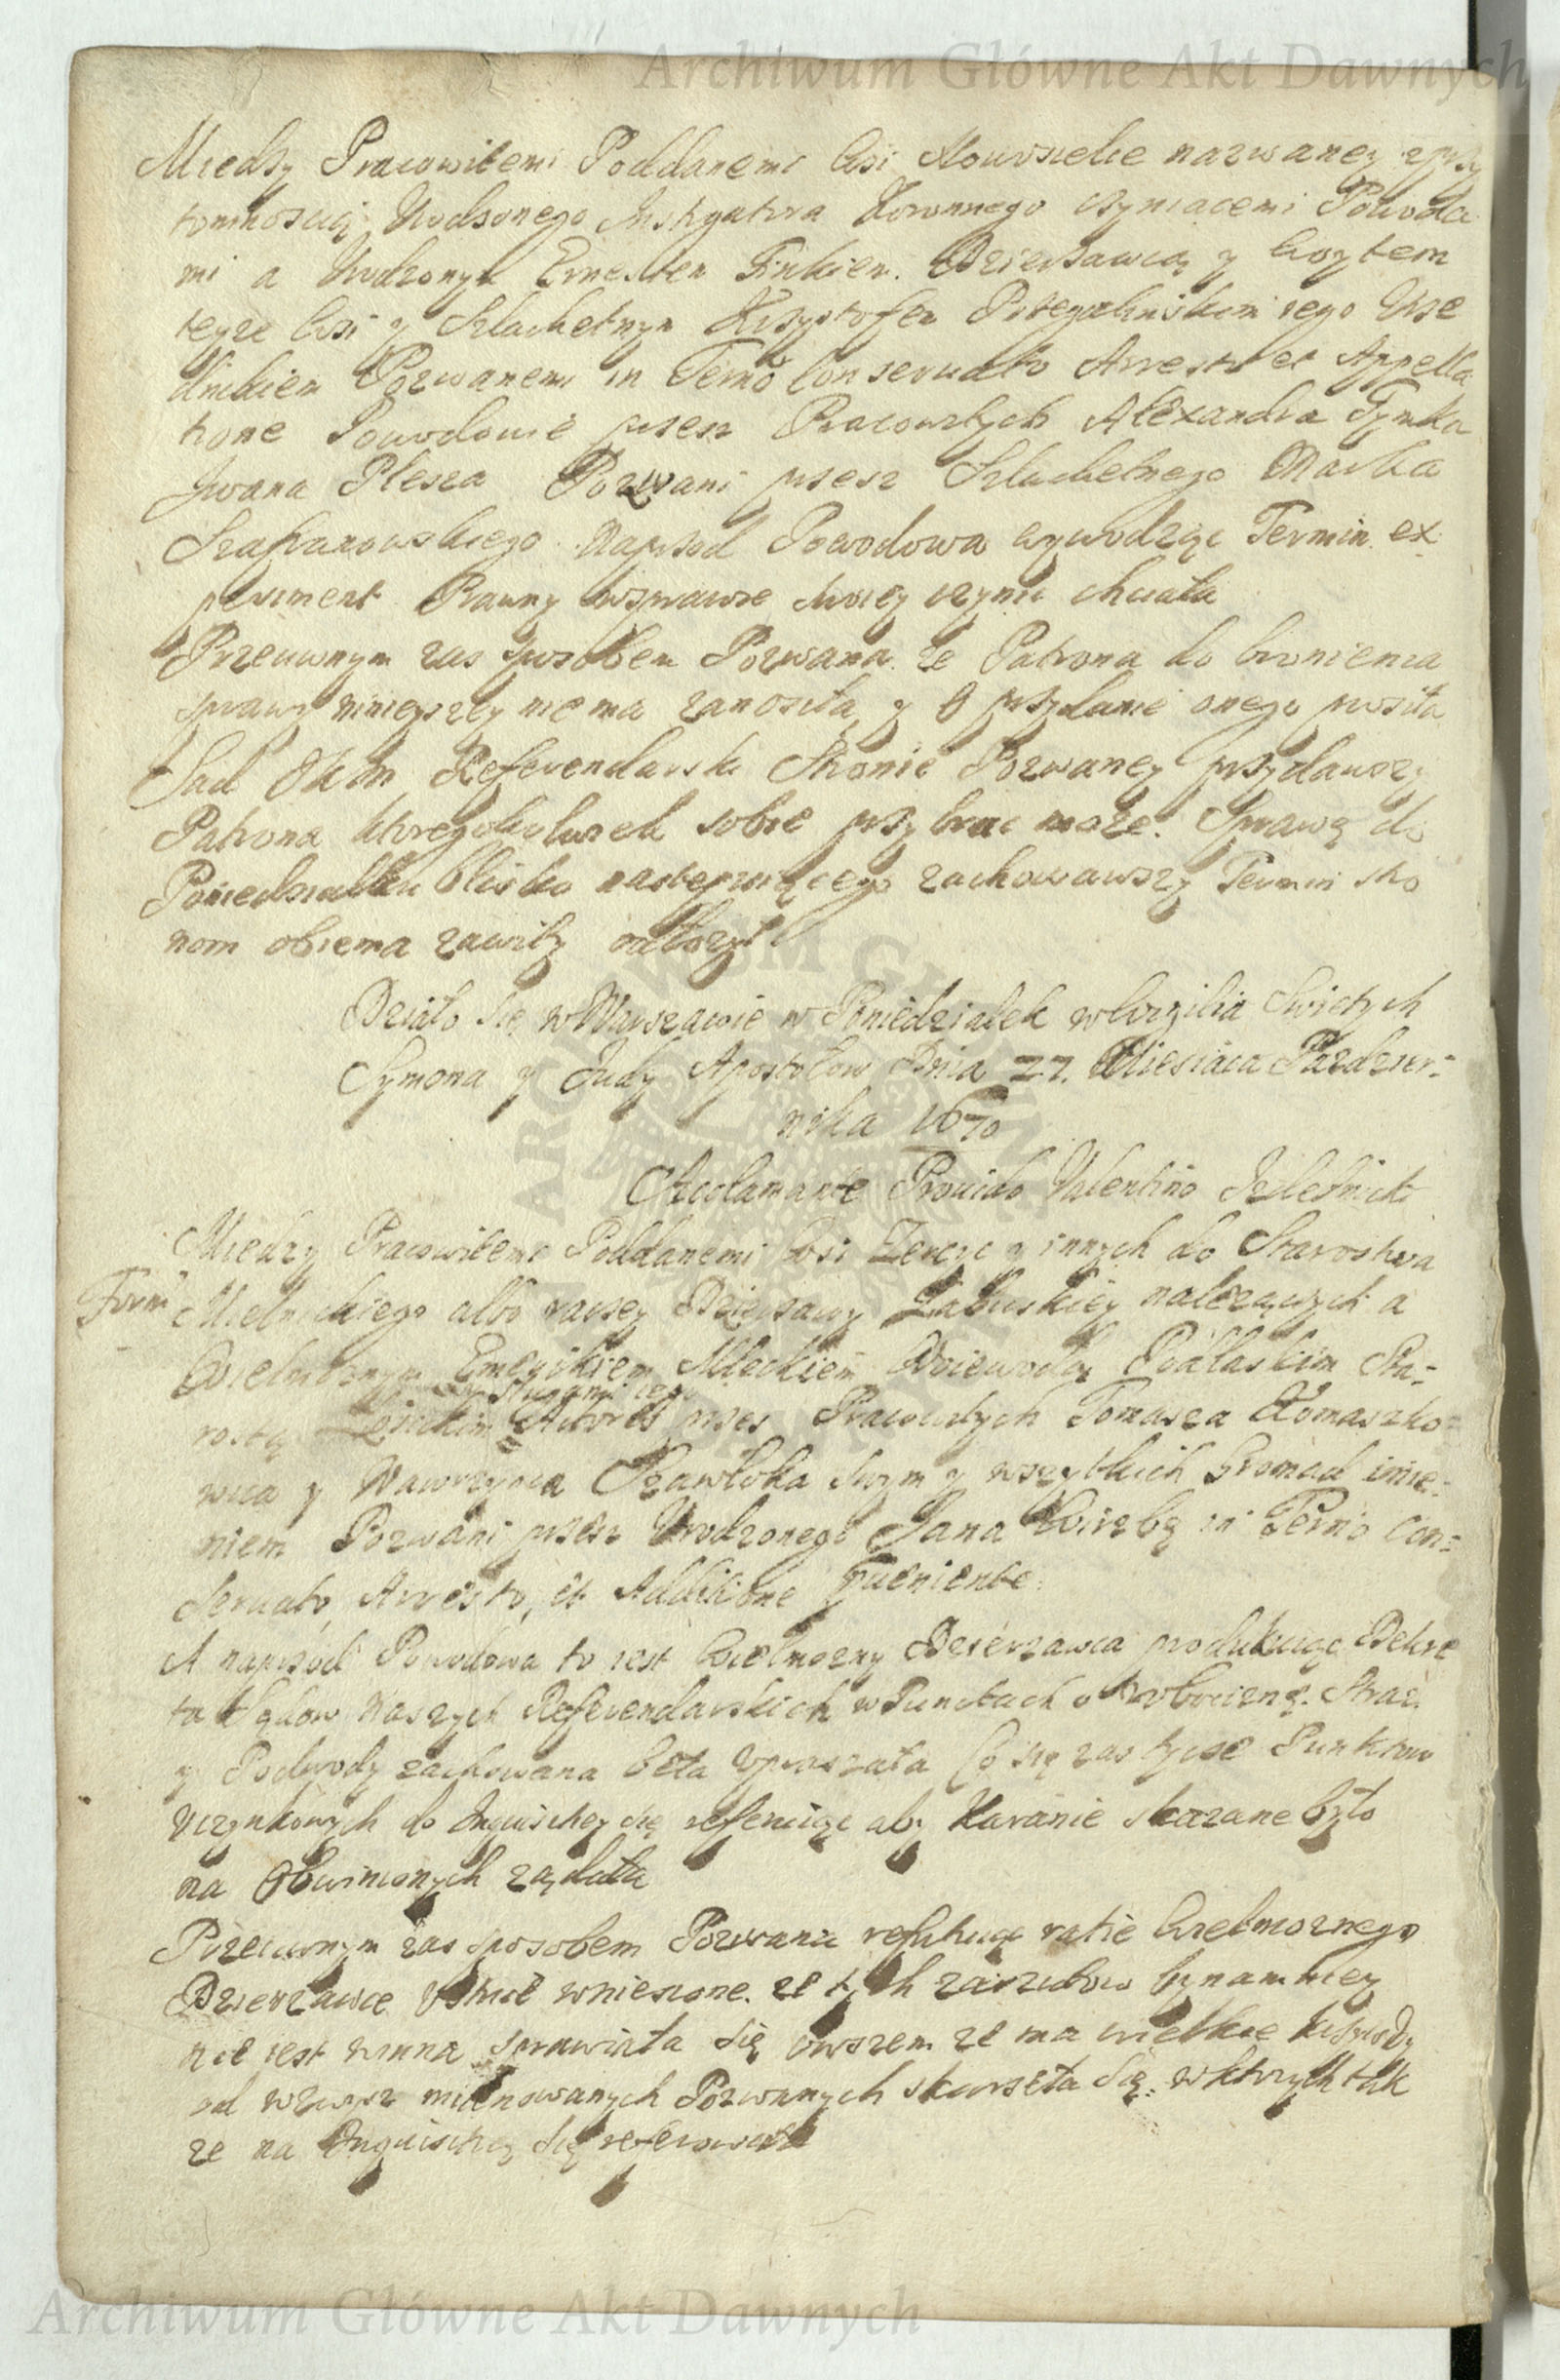 Archiwum Główne Akt Dawnych
Między Pracowitemi Poddanemi Wsi Nowosielce nazwaney z przy
tomnoscią Urodzonego Instygatora Koronnego czyniącemi Powoda
mi a Urodzonym Ernestem Finkiem Dzierzawcą y Woytem
teyze Wsi y Szlachetnym Krzysztofem iego Urze
dnikiem Pozwanemi in Termo Conservato Arresto et Appella
tione Powodowie przez Pracowitych Alexandra Tymka
Iwana Plesza Pozwani przez Szlachetnego Macka
Szafranowskiego Naprzod Powodowa wywodząc Termin ex
periment Prawny w sprawie swoiey czynic chciała
Przeciwnym zas sposobem Pozwana ze Patrona do bronienia
sprawy ninieyszey nie ma zanosiła y o przydanie onego prosiła
Sad JKM Referendarski Stronie Pozwaney przydawszy
Patrona ktoregokolwiek sobie przybrac moze. Sprawę do
Poniedziałku blisko następuiącego zachowawszy Termin stro
nom obiema zawity odłozył
Działo się w Warszawie w Poniedziałek w Wigilią Swiętych
Symona y Judy Apostołow Dnia 27. Miesiąca Pazdzier=
nika 1670
Acclamante Provido Valentino
Między Pracowitemi Poddanemi Wsi y innych do Starostwa
Mielnickiego albo raczey Dzierzawy nalezących a
Wielmoznym Emerykiem Mleckiem Woiewodą Podlaskim Sta=
rostą Actores przez Pracowitych Tomasza Tomaszko=
wica y Wawrzynca swym y wszytkich Gromad imie=
niem Pozwani przez Urodzonego Jana Wierzbę in Termo Con=
servato, Arresto, et Additione
A naprzod Powodowa to iest Wielmozny Dzierzawca produkuiąc Dekre
ta Sądow Naszych Referendarskich w Punctach o Straz
y Podwody zachowana beła upraszała Co się zas tycze Punktow
Uczynkowych do Inquisitiey się referuiąc aby Karanie skazane było
na Obwinionych ządała
Przeciwnym zas sposobem Pozwana refutuiąc ratie Wielmoznego
Dzierzawce ustnie wniesione. ze tych zarzutow bynamniey
nie iest winna sprawiała się owszem ze ma wielkie krzywdy
od wzwysz mienowanych Pozwanych skarzeła się: w ktorych tak
ze na Inquisitią się referowała
Archiwum Główne Akt Dawnych